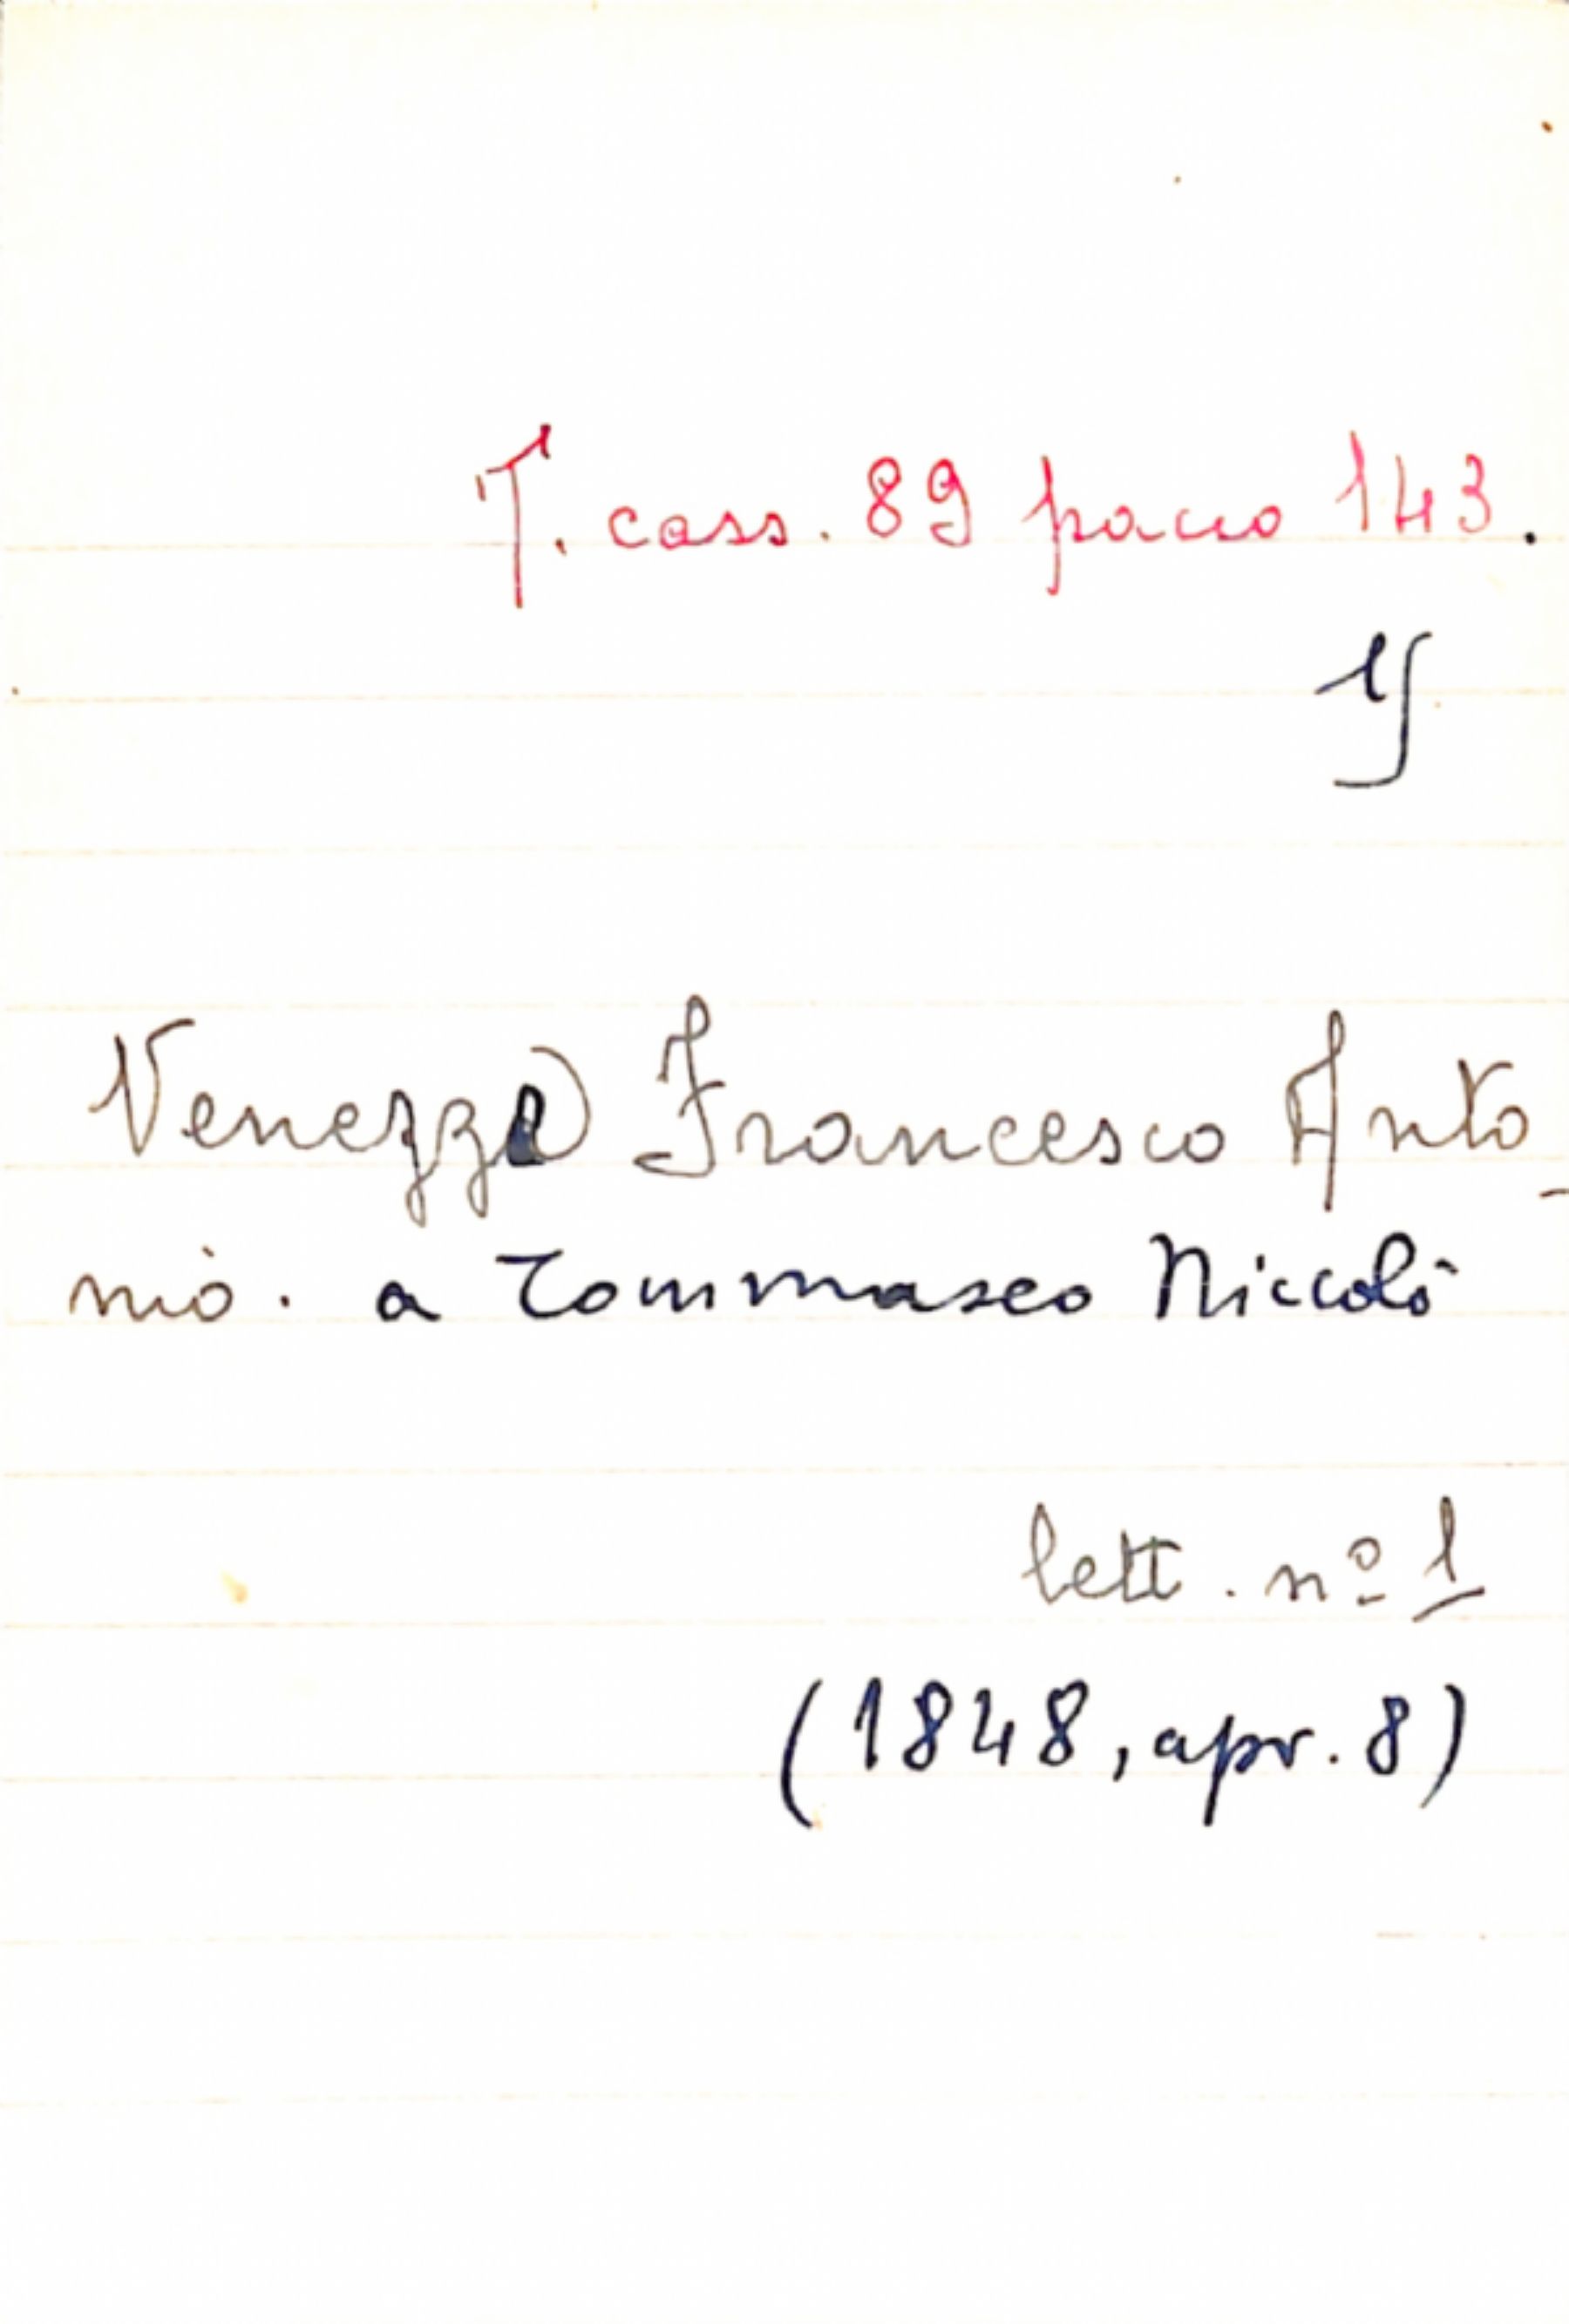 T. cass. 89 pacco 143.
15
Venezze Francesco Anto
nio. a Tommaseo Niccolò
lett. nº 1
(1848, apr. 8)